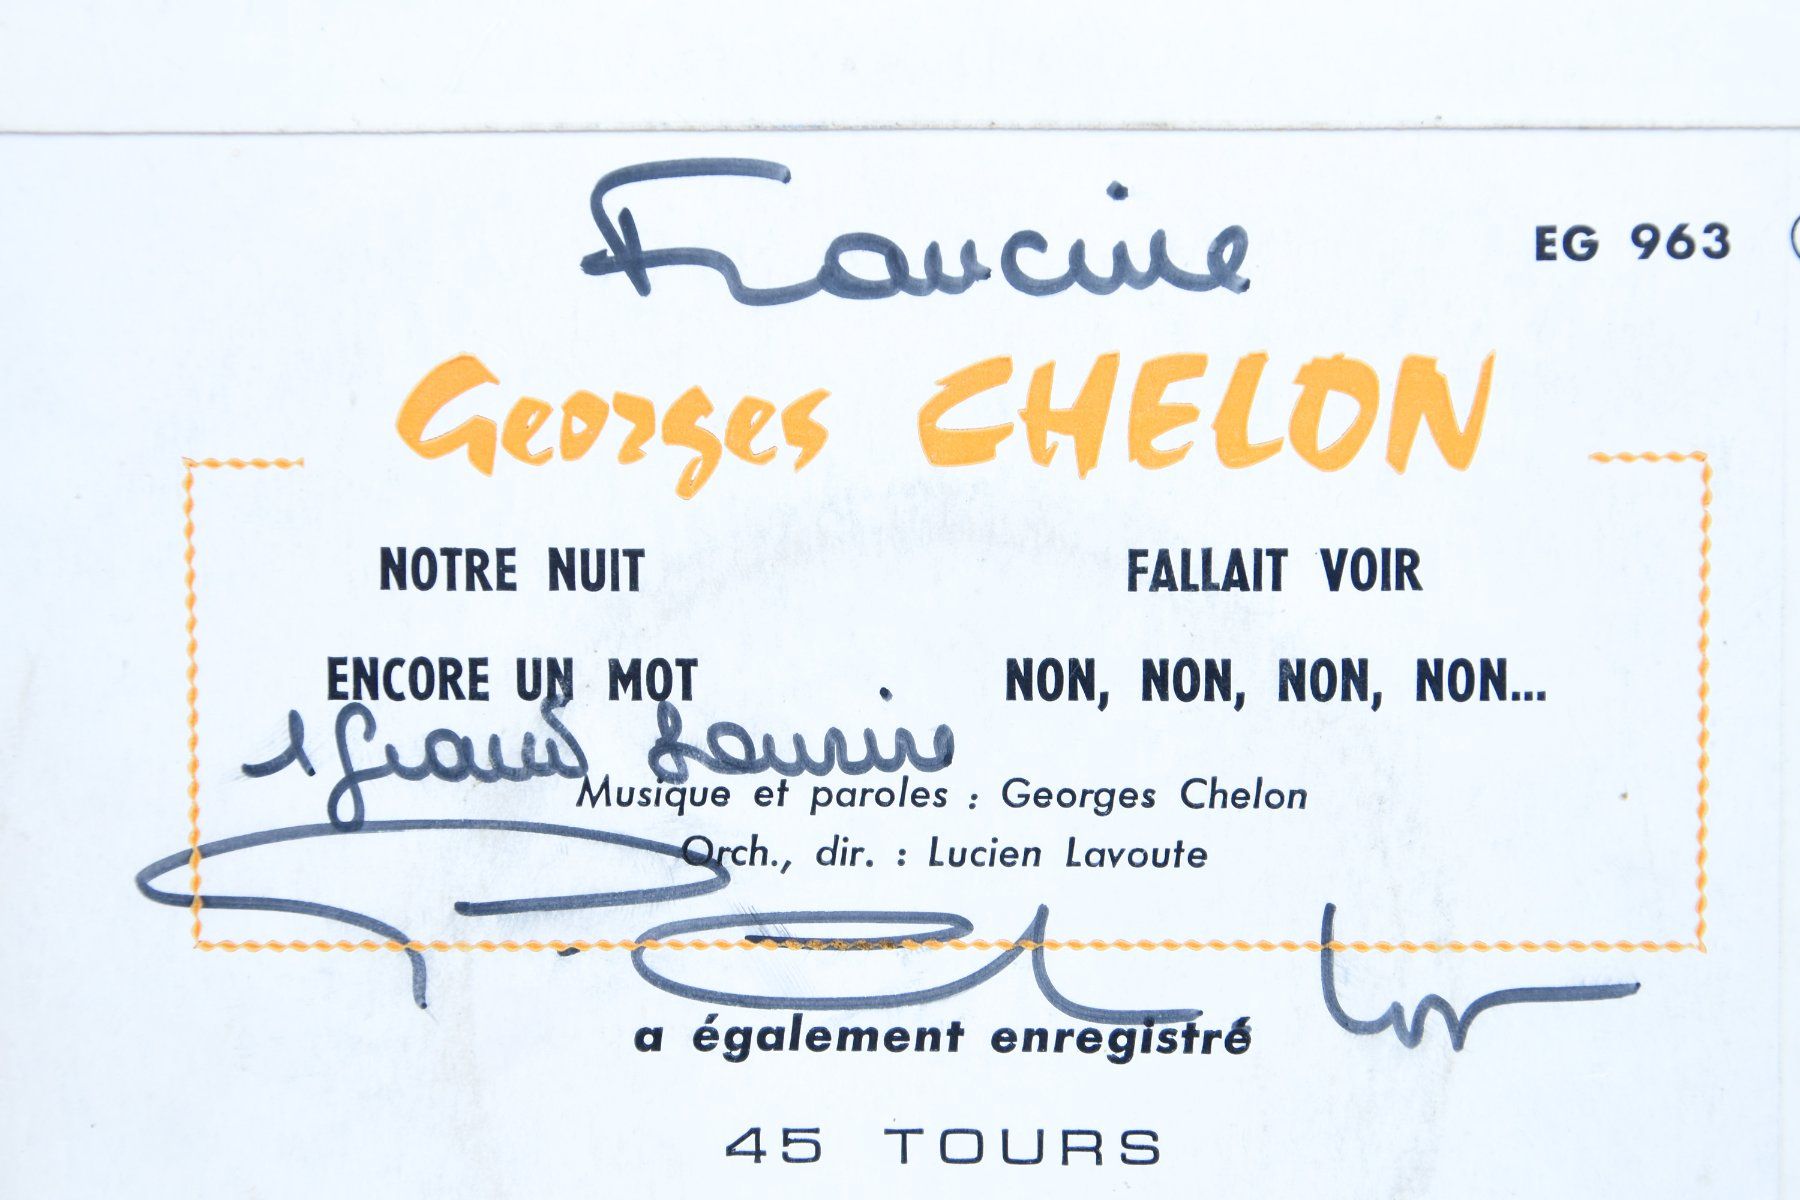 Francine
EG 963
Georges CHELON
NOTRE NUIT
FALLAIT VOIR
ENCORE UN MOT
NON, NON, NON, NON...
1 grand sourire
Musique et paroles : Georges Chelon
Orch., dir. : Lucien Lavoute
a également enregistré
45 TOURS